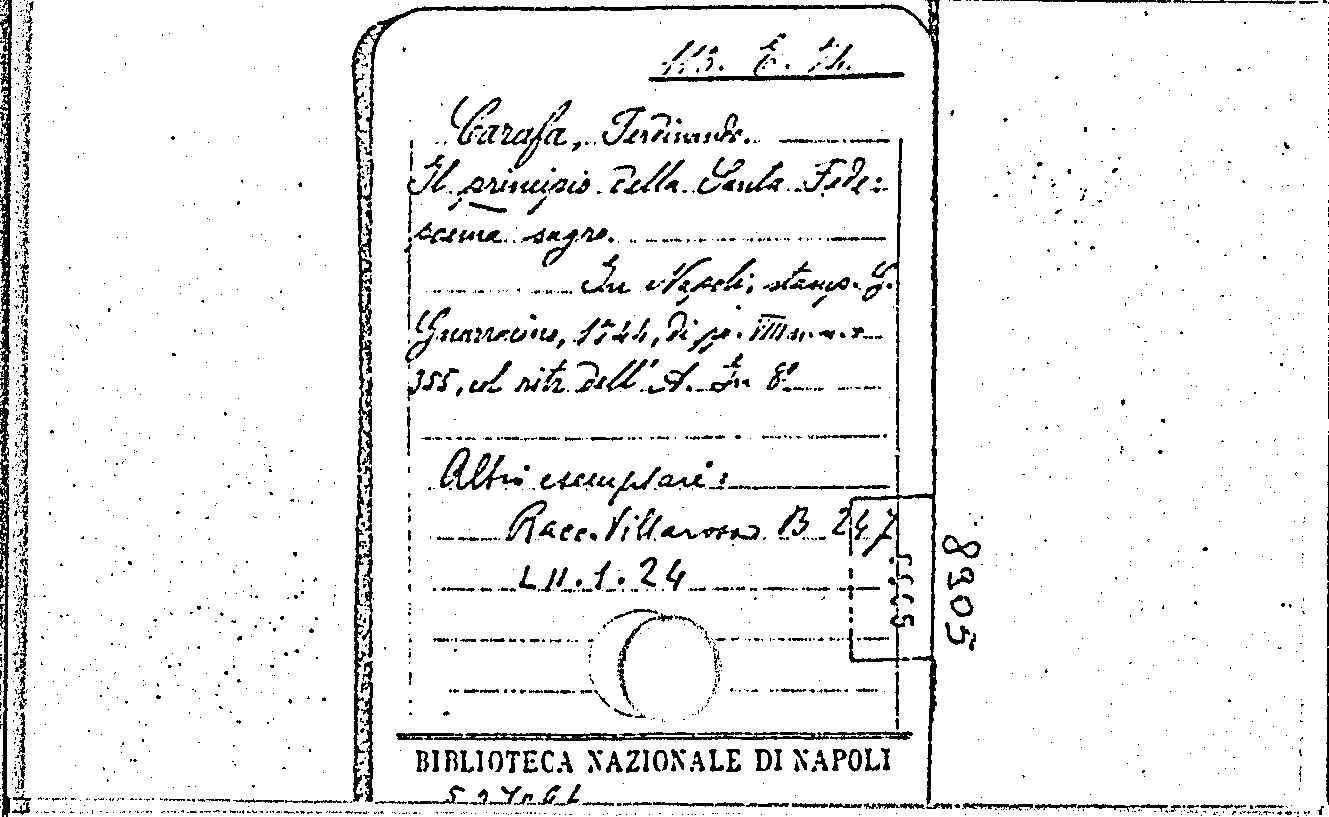 113. E. 14.
Carafa, Ferdinando.
Il principio della Santa Fede:
poema sagro.
In Napoli, stamp. G.
Guarracino, 1744, di pp. VIII n. n. e
355, col ritr. dell' A. In 8°
Altri esemplari:
Racc. Villarosa B 247
LII. 1. 24
8905
BIBLIOTECA NAZIONALE DI NAPOLI